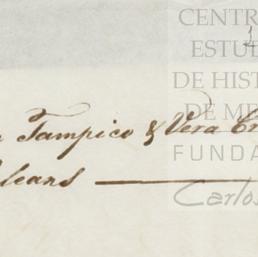 CENTR
ESTU
DE HIST
DE M
FUNDA
Carlos
Tampico & Vera Cr
leans